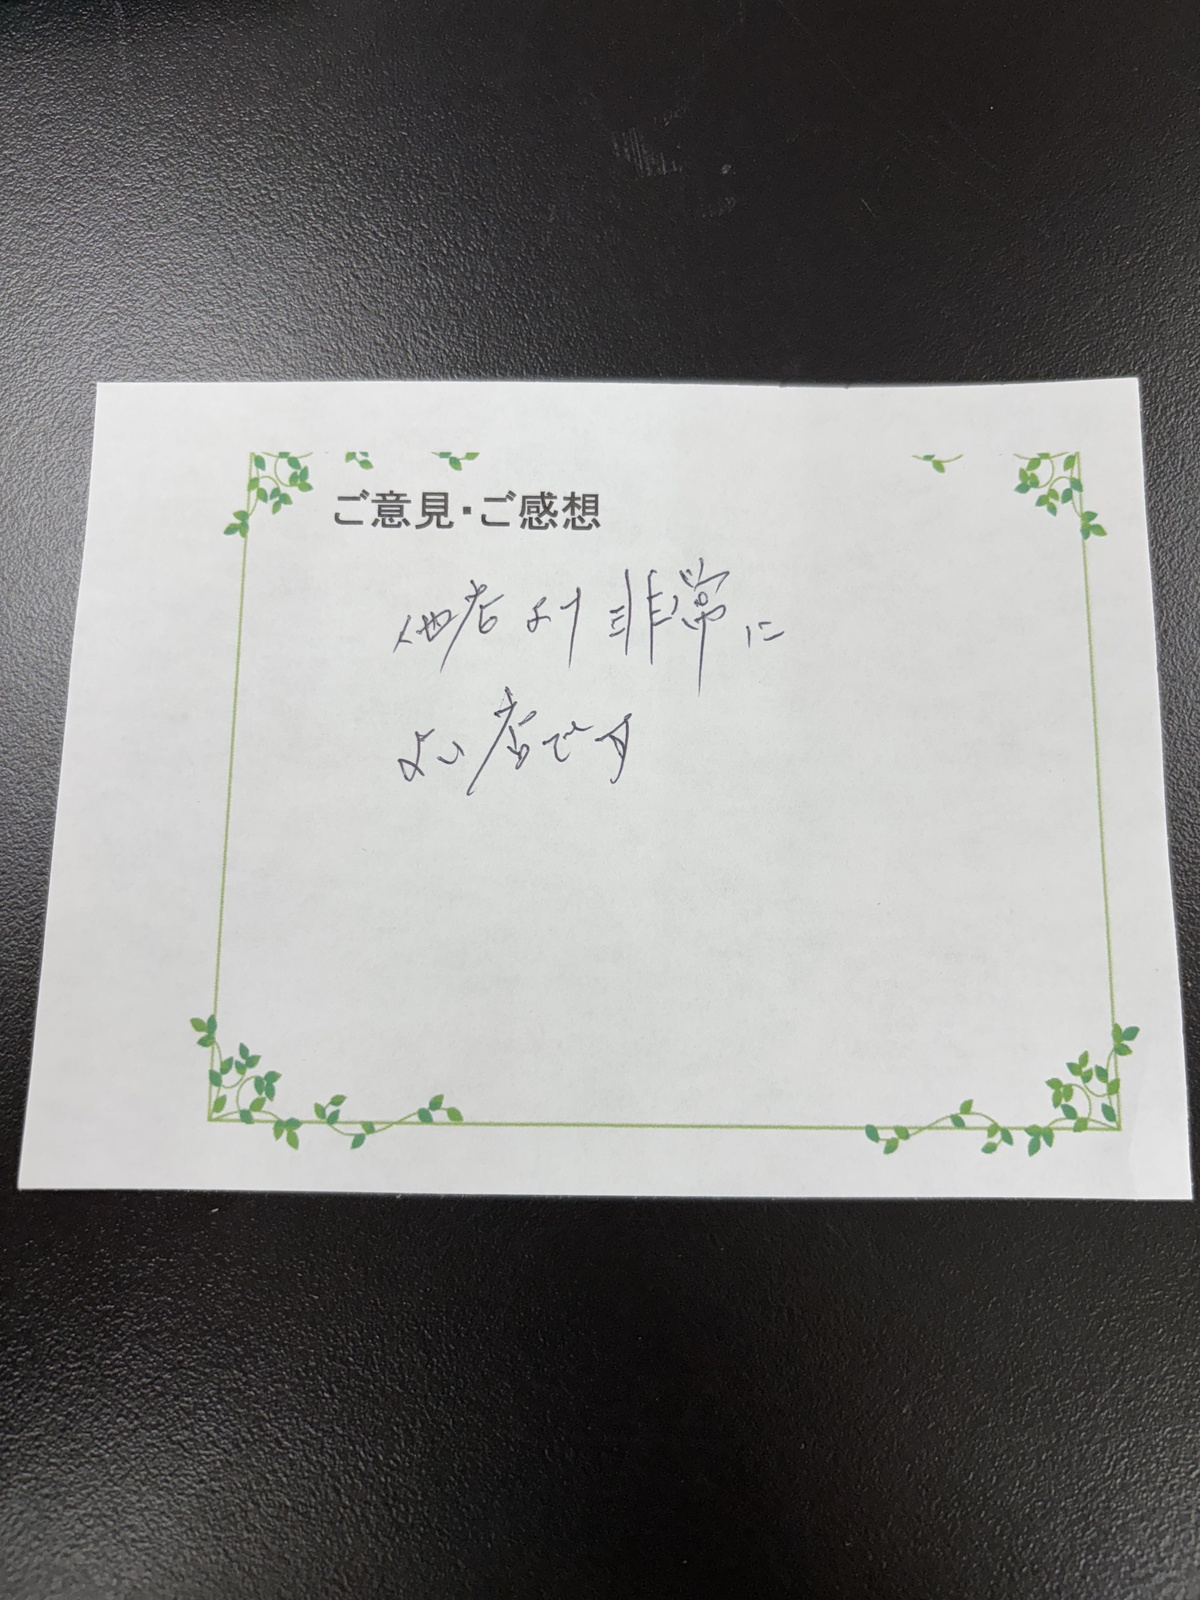 ご意見・ご感想
他店より非常に
よい店です